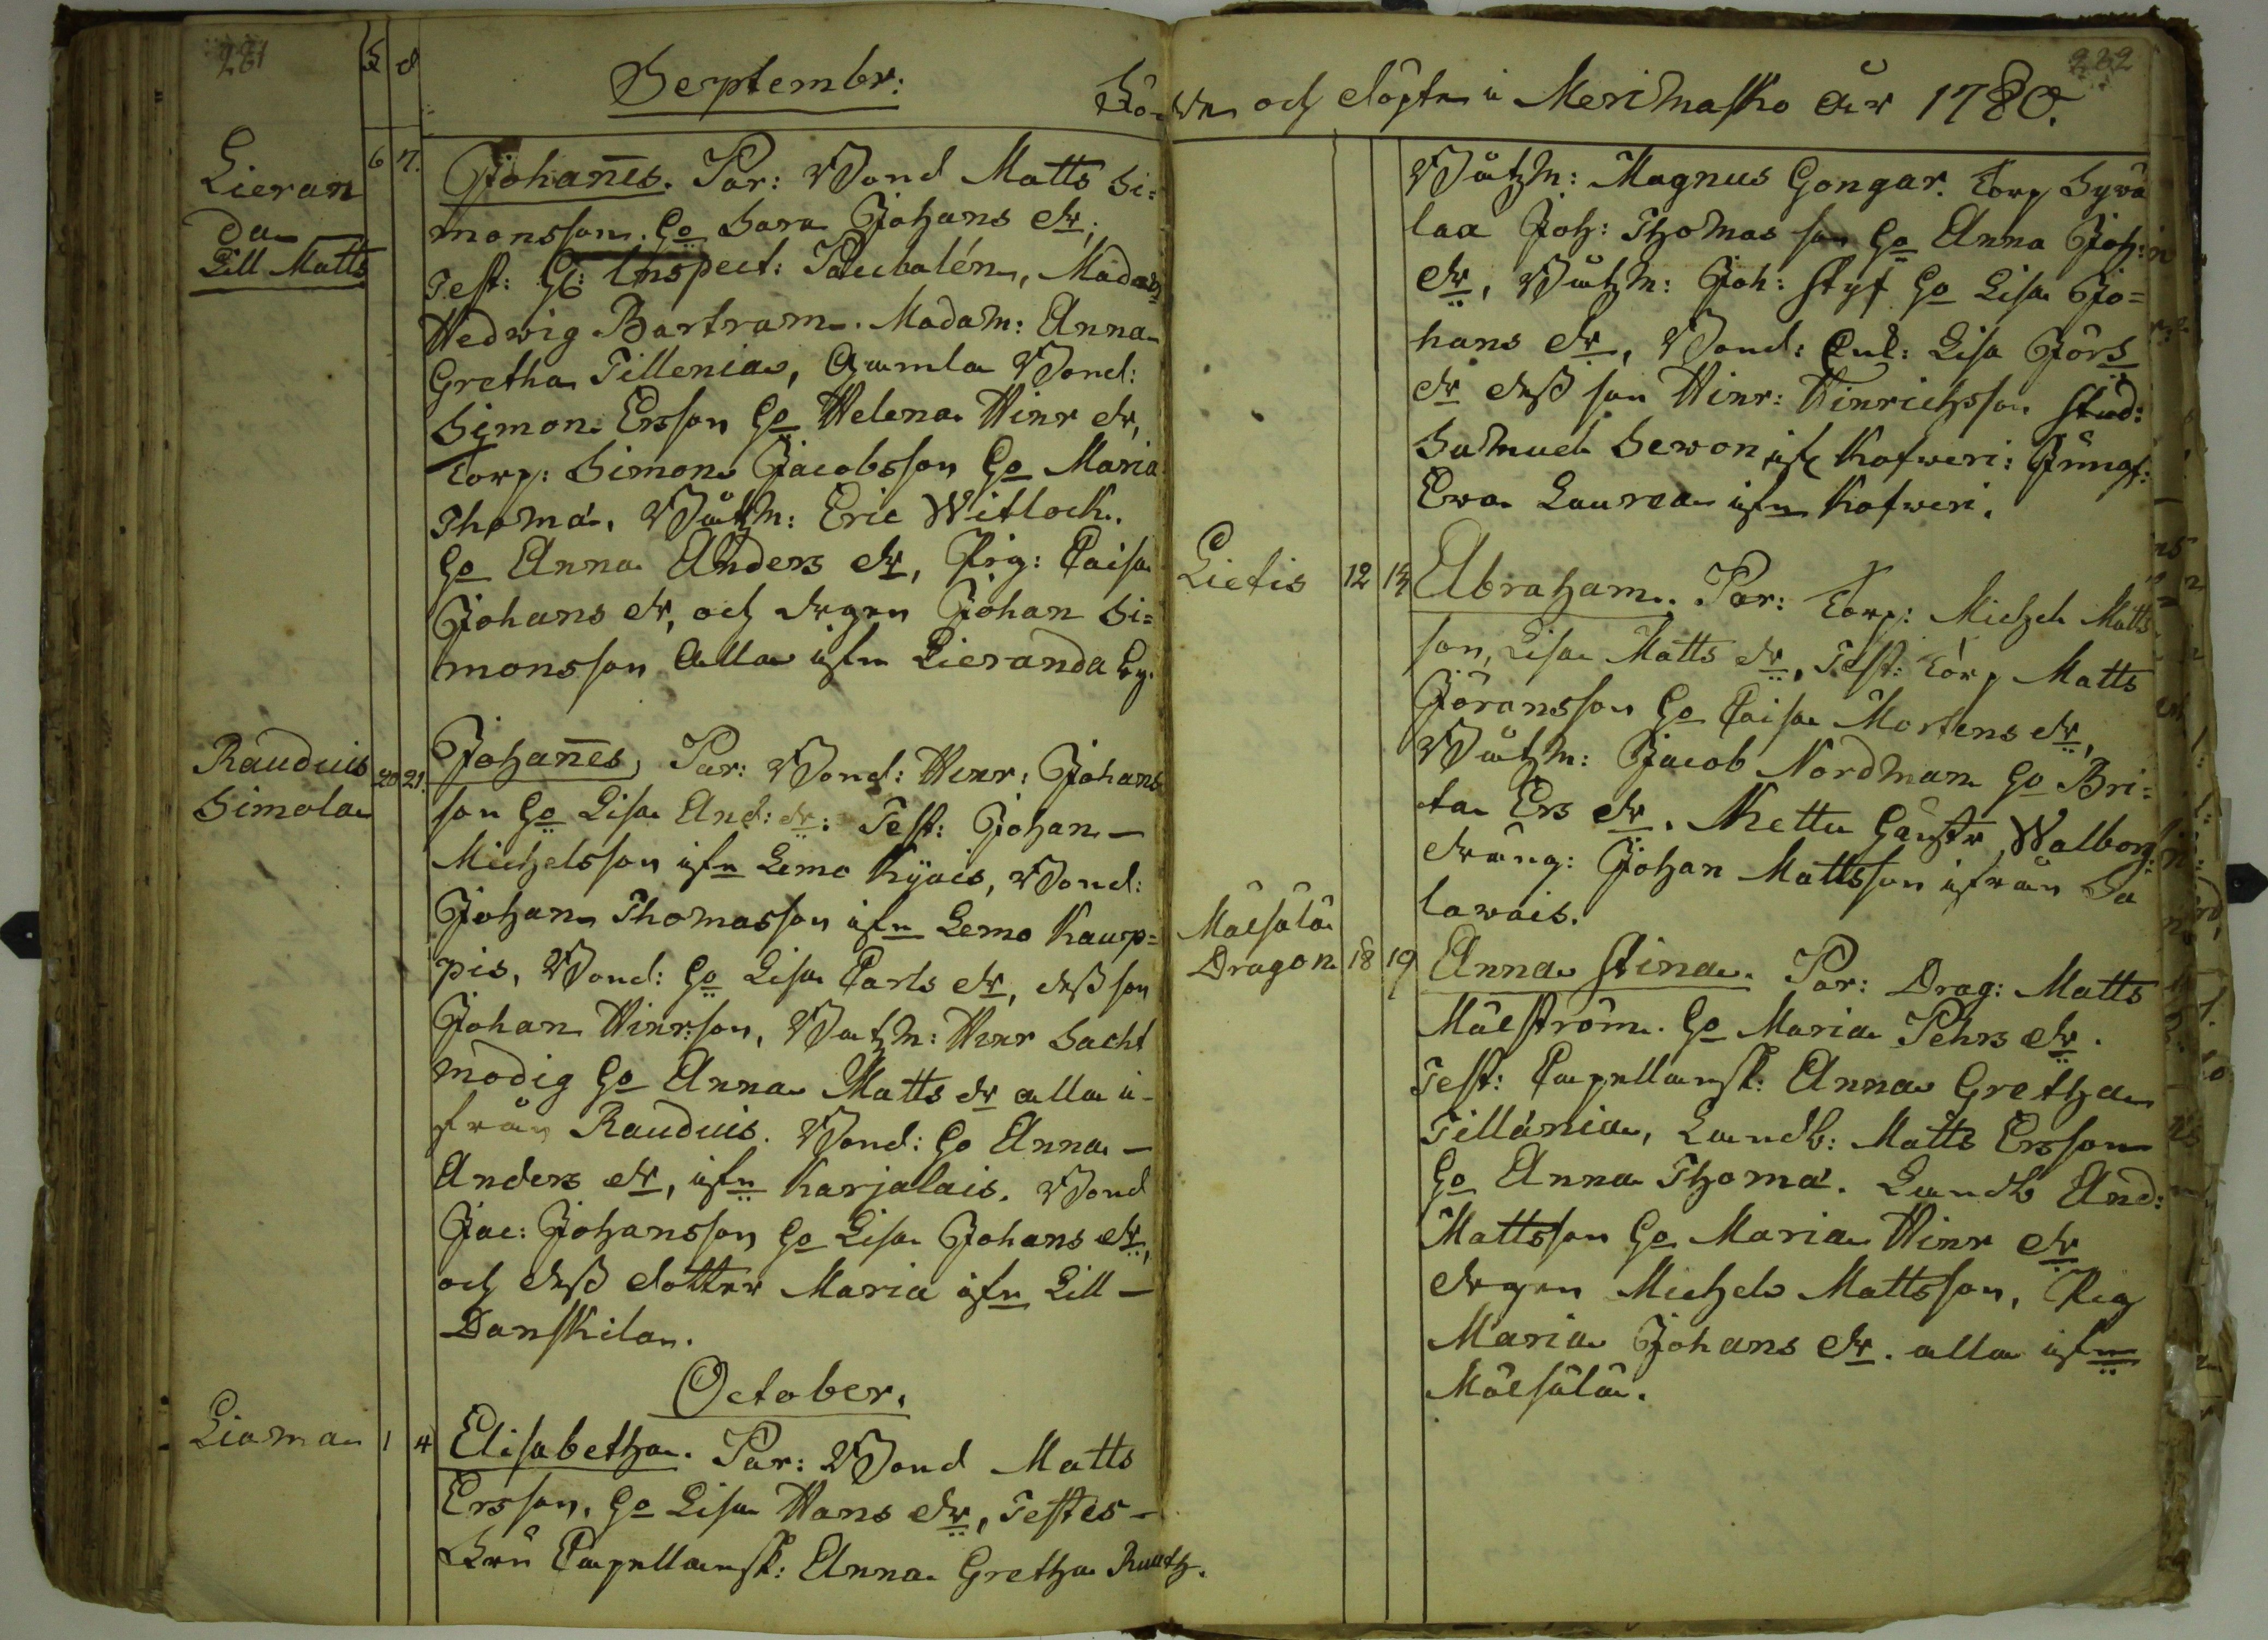 281
F d
Septembr:
Lieran
da
Lill Matts
6 7.
Johañes. Par: Bond Matts Si=
monsson. Ho Sara Johans dr;
Test: H: Inspect: Paulalén, Madam
Hedwig Bartram. Madam: Anna
Gretha Tillenia, Gamla Bond:
Simon Ersson Ho Helena Hinr dr,
Torp: Simon Jacobsson Ho Maria
Thoma, Båtzm: Eric Witlock.
Ho Anna Anders dr, Pig: Caisa
Johans dr, och drgen Johan Si=
monsson alla ifrn Lieranda by.
Rauduis
Simola
20 21.
Johañes, Par: Bond: Hinr: Johans
son Ho Lisa And: dr: Test: Johan
Michelsson ifrn Lemo Kyais, Bond:
Johan Thomasson ifrn Lemo Kaup=
pis, Bond: Ho Lisa Carls dr, dess son
Johan Hinrson, Båtzm: Hinr Sacht
modig Ho Anna Matts dr alla i
från Rauduis. Bond: Ho Anna
Anders dr, ifrn Karjalais. Bond
Jac: Johansson Ho Lisa Johans dr,
och dess dotter Maria ifrn Lill
Danskila.
October.
Liama 1 4
Elisabetha. Par: Bond Matts
Ersson, Ho Lisa Hans dr, Testes
Fru Capellansk: Anna Gretha Ruuth.
282
Födde och döpte i Merimasko år 1780.
Båtzm: Magnus Gongar. Torp Sywä
laa Joh: Thomas son Ho Anna Joh:
dr, Båtzm: Joh: Styf Ho Lisa Jo=
hans dr, Bond: Enk: Lisa Jörs
dr dess son Hinr: Hinrichsson Stud:
Samuel Sewon ifr Kafweri: Jungf:
Ewa Laurea ifrn Kafweri.
Lietis 12 14
Abraham. Par: Torp: Michel Matts
son, Lisa Matts dr, Test: Torp Matts
Jöransson Ho Caisa Mortens dr,
Båtzm: Jacob Nordman Ho Bri=
ta Ers dr. Mettu Hustr Walborg:
dräng: Johan Mattsson ifrån Sa
lawais.
Mäesälä
Dragon 18 19
Anna Stina. Par: Drag: Matts
Mäeström. Ho Maria Pehrs dr.
Test: Capellansk: Anna Gretha
Tillänia, Landb: Matts Ersson
Ho Anna Thoma. Landb And:
Mattsson Ho Maria Hinr dr
drgen Michel Mattsson, Pig
Maria Johans dr. alla ifrn
Mäesälä.